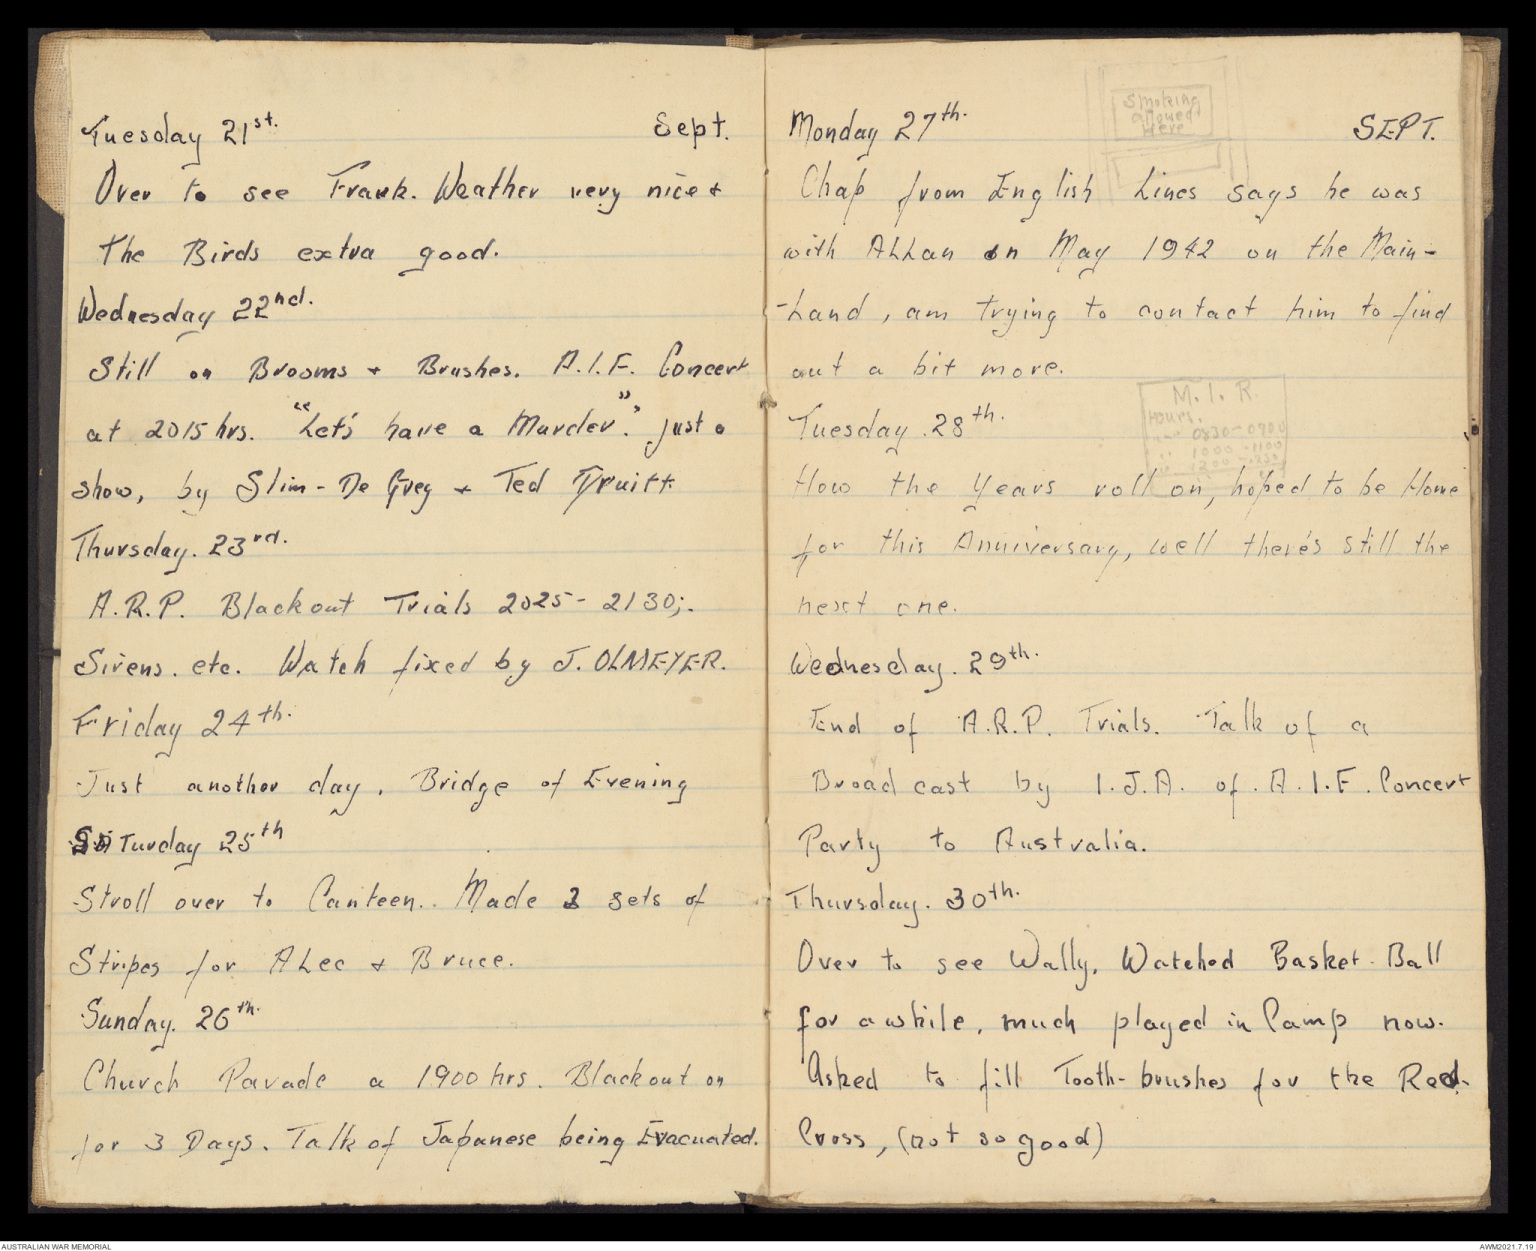 Tuesday 21st. Sept.
Over to see Frank. Weather very nice +
the Birds extra good.
Wednesday 22nd.
Still on Brooms + Brushes. A.I.F. Concert
at 2015 hrs. "Let's have a Murder". just a
show, by Slim - De Grey + Ted Druitt
Thursday. 23rd.
A.R.P. Blackout Trials 2025 - 2130;.
Sirens. etc. Watch fixed by J. OLMEYER.
Friday 24th.
Just another day, Bridge of Evening
SaTurday 25th
Stroll over to Canteen. Made 2 sets of
Stripes for ALec + Bruce.
Sunday. 26th.
Church Parade a 1900 hrs. Blackout on
for 3 Days. Talk of Japanese being Evacuated.
Monday 27th. SEPT.
Chap from English Lines says he was
with ALLan on May 1942 on the Main-
-Land, am trying to contact him to find
out a bit more.
Tuesday. 28th.
How the Years roll on, hoped to be Home
for this Anniversary, well there's still the
next one.
Wednesday. 29th.
End of A.R.P. Trials. Talk of a
Broad cast by I.J.A. of A.I.F. Concert
Party to Australia.
Thursday. 30th.
Over to see Wally, Watched Basket-Ball
for awhile, much played in Camp now.
Asked to fill Tooth-brushes for the Red.
Cross, (not so good)
Smoking
allowed
Here
M.I.R.
Hours.
0830-0900
AUSTRALIAN WAR MEMORIAL
AWM2021.7.19